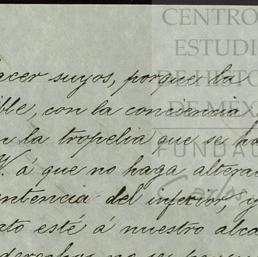 CENTRO
ESTUDI
DE HISTO
DE MÉX
FUNDAC
acer suyos, porque la
ible, con la conciencia
n la tropelia que se ha
V. á que no haga altera
entencia del inferior, y
ato esté á nuestro alca